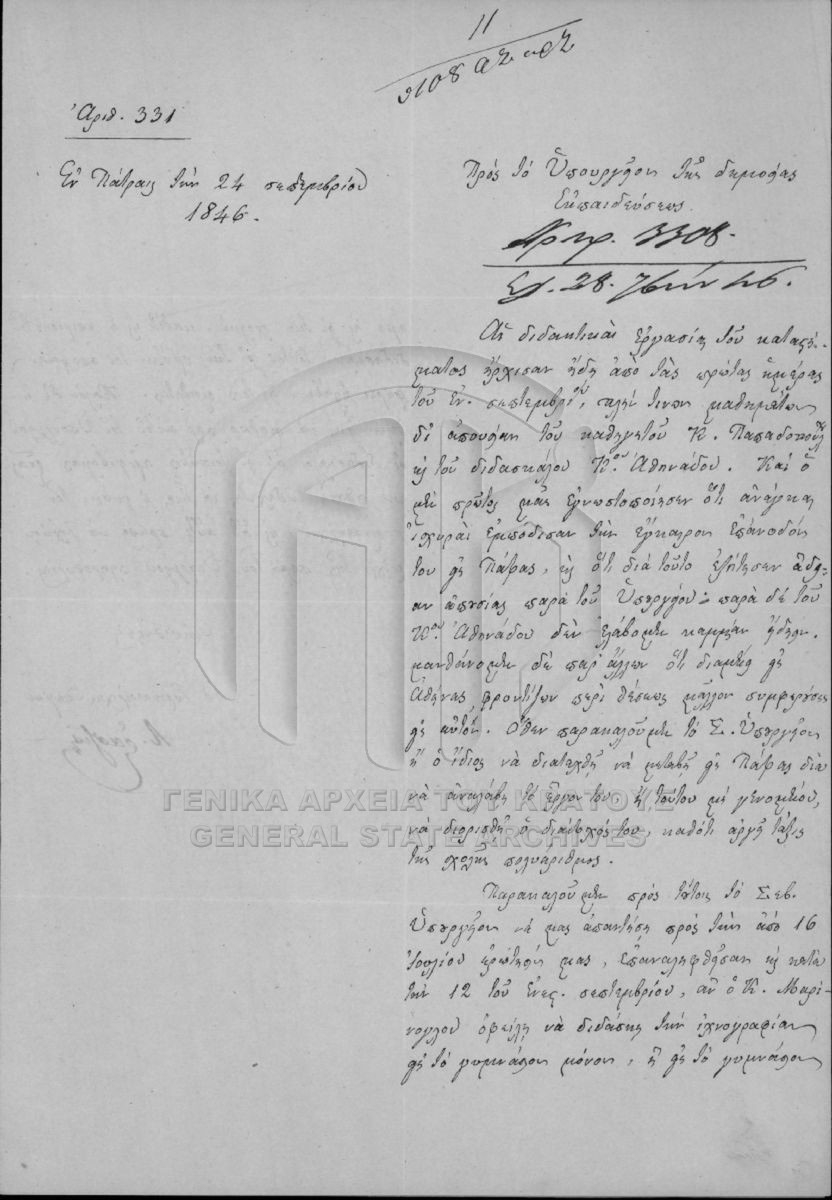 11
9108
Ἀριθ. 331
Ἐν Πάτραις τὴν 24 σεπτεμβρίου
1846.
Πρὸς τὸ Ὑπουργεῖον τῆς δημοσίας
Ἐκπαιδεύσεως
Πρωτ. 3308.
28. 7βρίου 46.
Αἱ διδακτικαὶ ἐργασίαι τοῦ καταστή-
ματος ἤρχισαν ἤδη ἀπὸ τὰς πρώτας ἡμέρας
τοῦ ἐν. σεπτεμβρίου, πλὴν τινων μαθημάτων
δι' ἀπουσίαν τοῦ καθηγητοῦ Κ. Παπαδοπούλου
κ τοῦ διδασκάλου Κου Ἀθηνάδου. Καὶ ὁ
μὲν πρῶτος μᾶς ἐγνωστοποίησεν ὅτι ἀνάγκαι
ἰσχυραὶ ἐμπόδισαν τὴν ἔγκαιρον ἐπάνοδόν
του εἰς Πάτρας, κ ὅτι διὰ τοῦτο ἐζήτησεν ἄδει-
αν ἀπουσίας παρὰ τοῦ Ὑπουργείου· παρὰ δὲ τοῦ
Κου Ἀθηνάδου δὲν ἐλάβομεν καμμίαν εἴδησιν.
μανθάνομεν δὲ παρ' ἄλλων ὅτι διαμένει εἰς
Ἀθήνας, φροντίζων περὶ θέσεως μᾶλλον συμφερούσης
εἰς αὐτόν. Ὅθεν παρακαλοῦμεν τὸ Σ. Ὑπουργεῖον
ἢ ὁ ἴδιος νὰ διαταχθῇ νὰ μεταβῇ εἰς Πάτρας διὰ
νὰ ἀναλάβῃ τὸ ἔργον του ἢ τούτου μὴ γενομένου,
νὰ διορισθῇ ὁ διάδοχός του, καθότι ἀργεῖ τάξις
τῆς σχολῆς πολυάριθμος.
Παρακαλοῦμεν πρὸς τούτοις τὸ Σεβ.
Ὑπουργεῖον νὰ μας ἀπαντήσῃ πρὸς τὴν ἀπὸ 16
Ἰουλίου ἐρώτησίν μας, ἐπαναληφθεῖσαν κ κατὰ
τὴν 12 τοῦ ἐνεσ. σεπτεμβρίου, ἂν ὁ Κ. Μαρι-
νογλου ὀφείλῃ νὰ διδάσκῃ τὴν ἰχνογραφίαν
εἰς τὸ γυμνάσιον μόνον, ἢ εἰς τὸ γυμνάσιον
ΓΕΝΙΚΑ ΑΡΧΕΙΑ ΤΟΥ ΚΡΑΤΟΥΣ
GENERAL STATE ARCHIVES